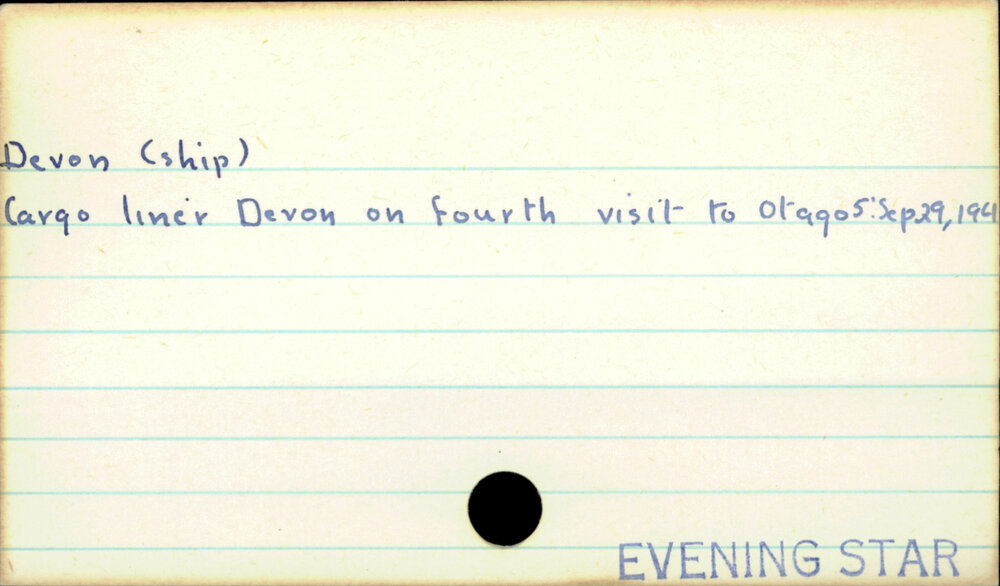 Devon (ship)
Cargo liner Devon on fourth visit to Otago 5: Sep 29, 194
EVENING STAR